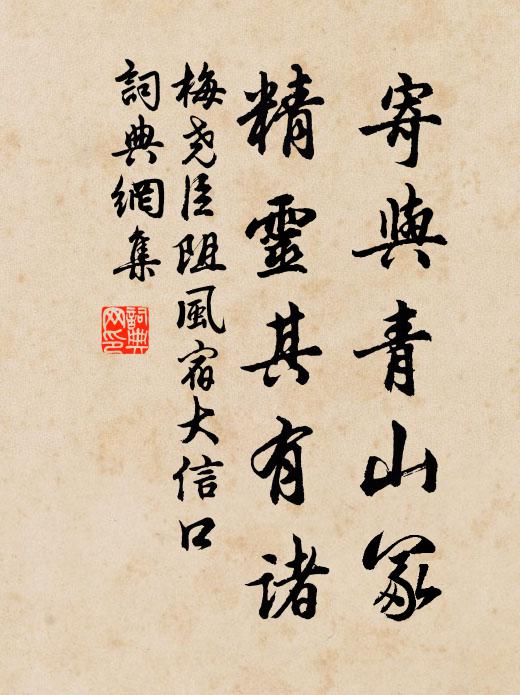 寄與青山冢
精靈其有諸
梅堯臣阻風宿大信口
詞典網集
詞典网印